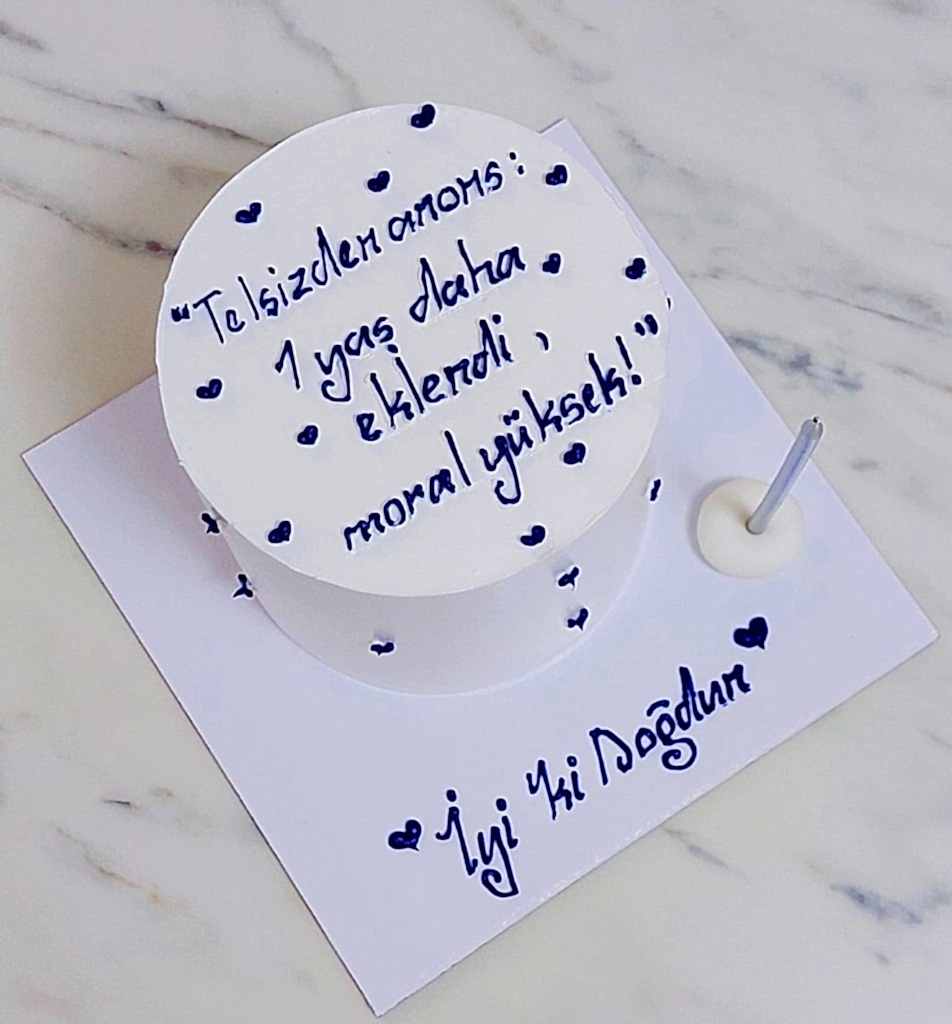 "Telsizden anons:
1 yaş daha
eklendi,
moral yüksek!"
İyi ki Doğdun